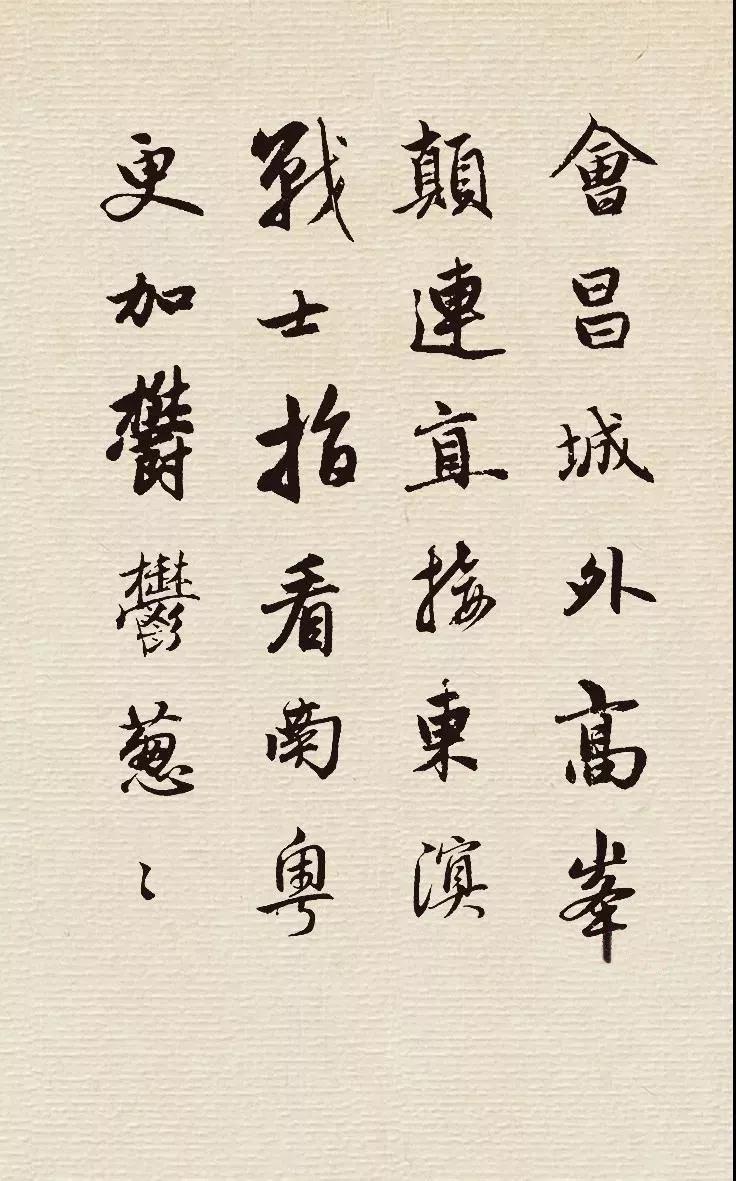 會昌城外高峯
顛連直接東溟
戰士指看南粵
更加欝鬱蔥〻